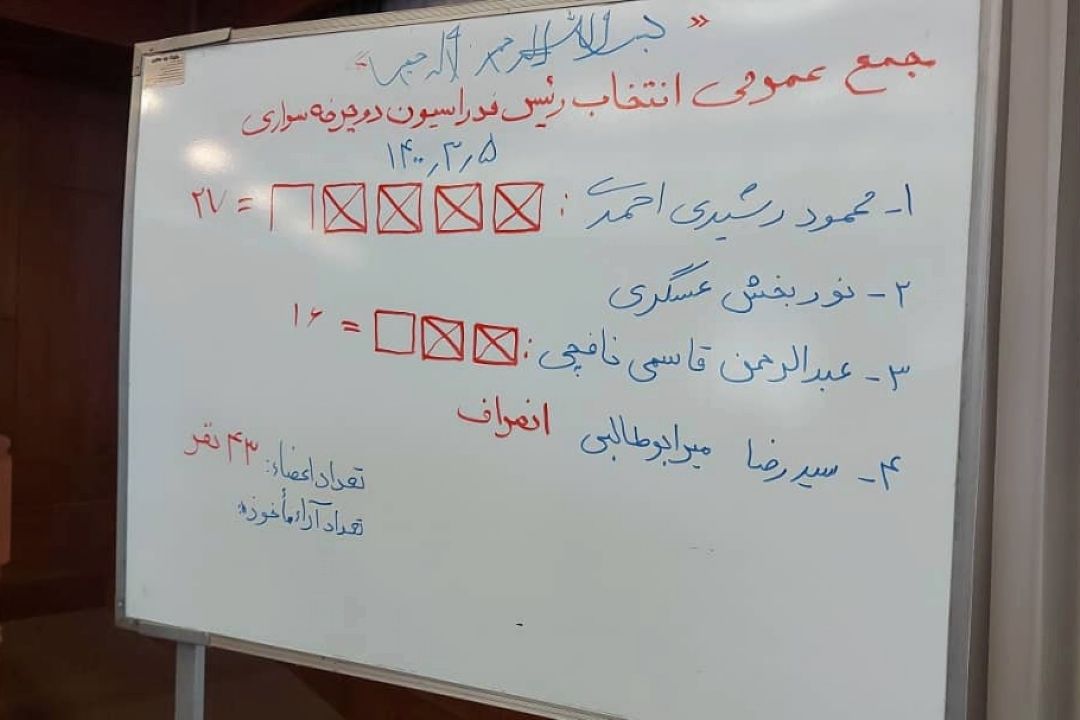 « بسم الله الرحمن الرحیم »
جمع عمومی انتخاب رئیس فدراسیون دوچرخه سواری
۱۴۰۰٫۳٫۵
۱- محمود رشیدی احمدی : = ۲۷
۲- نوربخش عسگری
۳- عبدالرحمن قاسمی نافچی : = ۱۶
۴- سید رضا میرابوطالبی انصراف
تعداد اعضاء: ۴۳ نفر
تعداد آراء مأخوذه: